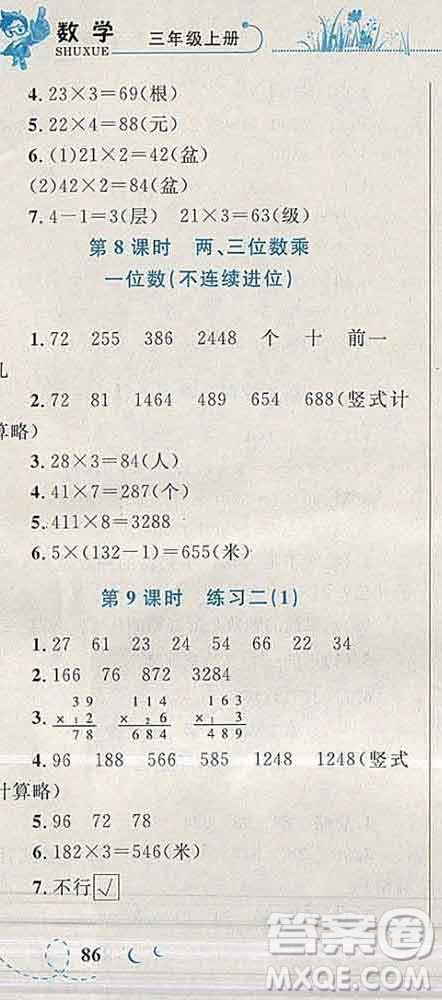 数学
SHUXUE
三年级上册
4. 23×3=69(根)
5. 22×4=88(元)
6. (1)21×2=42(盆)
(2)42×2=84(盆)
7. 4-1=3(层) 21×3=63(级)
第8课时 两、三位数乘
一位数(不连续进位)
1. 72 255 386 2448 个 十 前一
几
2. 72 81 1464 489 654 688(竖式计
算略)
3. 28×3=84(人)
4. 41×7=287(个)
5. 411×8=3288
6. 5×(132-1)=655(米)
第9课时 练习二(1)
1. 27 61 23 24 54 66 22 34
2. 166 76 872 3284
3.
39 114 163
×12 ×26 ×33
78 684 489
4. 96 188 566 585 1248 1248(竖式
计算略)
5. 96 72 78
6. 182×3=546(米)
7. 不行√
86
答案圈
MXQE.COM